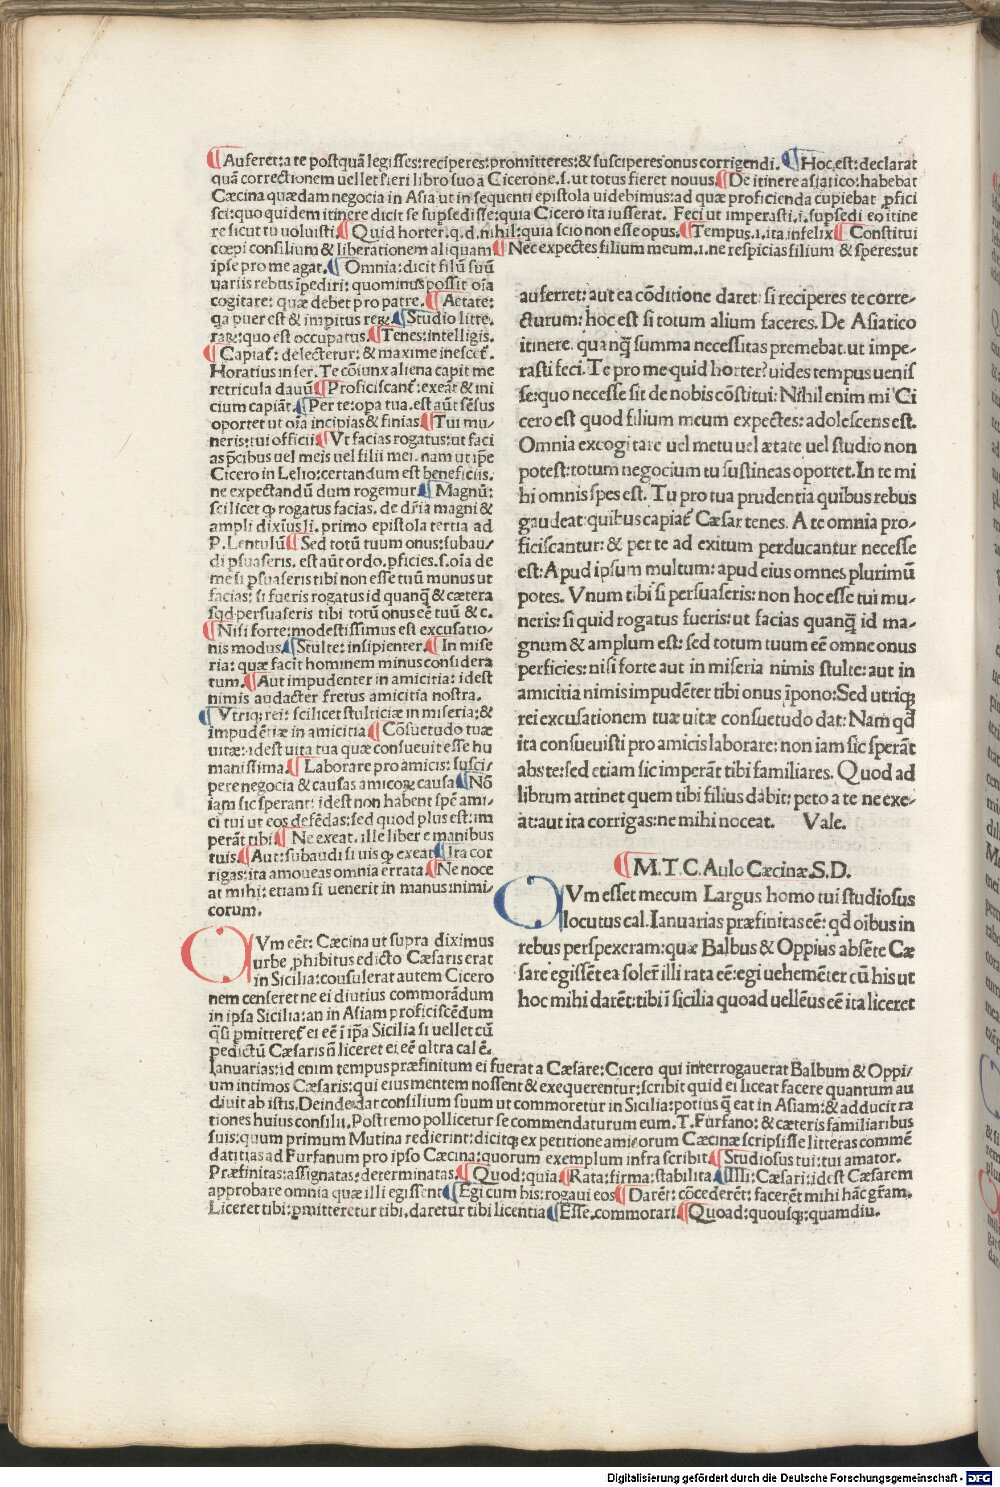 ¶Auferet: a te postquā legisses: reciperes: promitteres: & susciperes onus corrigendi. ¶Hoc est: declarat
quā correctionem uellet fieri libro suo a Cicerone .s. ut totus fieret nouus ¶De itinere asiatico: habebat
Cæcina quædam negocia in Asia ut in sequenti epistola uidebimus: ad quæ proficienda cupiebat ꝓfici
sci: quo quidem itinere dicit se suꝑsedisse: quia Cicero ita iusserat. Feci ut imperasti .i. suꝑsedi eo itine
re sicut tu uoluisti ¶Quid horter: q.d. nihil: quia scio non esse opus. ¶Tempus .i. ita infelix ¶Constitui
cœpi consilium & liberationem aliquam ¶Nec expectes filium meum .i. ne respicias filium & speres: ut
ipse pro me agat. ¶Omnia: dicit filiū suū
uariis rebus īpediri: quominus possit oīa
cogitare: quæ debet pro patre. ¶Aetate:
qa puer est & impitus reꝝ ¶Studio litte-
raꝝ: quo est occupatus. ¶Tenes: intelligis.
¶Capiat̄: delectetur: & maxime inescet̄.
Horatius in ser. Te cōiunx aliena capit me
retricula dauū ¶Proficiscant̄: exeāt & ini
cium capiāt. ¶Per te: opa tua. est aūt sēsus
oportet ut oīa incipias & finias. ¶Tui mu-
neris: tui officii ¶Vt facias rogatus: ut faci
as p̄cibus uel meis uel filii mei. nam ut ip̄e
Cicero in Lelio: certandum est beneficiis.
ne expectandū dum rogemur ¶Magnū:
scilicet ꝙ rogatus facias. de dr̄ia magni &
ampli diximus li. primo epistola tertia ad
P. Lentulū ¶Sed totū tuum onus: subau-
di ꝑsuaseris. est aūt ordo. ꝑficies .s. oīa de
me si ꝑsuaseris tibi non esse tuū munus ut
facias: si fueris rogatus id quanꝗ & cætera
sꝗd persuaseris tibi totū onus eē tuū & c.
¶Nisi forte: modestissimus est excusatio-
nis modus. ¶Stulte: insipienter. ¶In mise
ria: quæ facit hominem minus considera
tum. ¶Aut impudenter in amicitia: idest
nimis audacter fretus amicitia nostra.
¶Vtriqꝫ rei: scilicet stulticiæ in miseria: &
impudētiæ in amicitia ¶Cōsuetudo tuæ
uitæ: idest uita tua quæ consueuit esse hu
manissima. ¶Laborare pro amicis: susci-
pere negocia & causas amicoꝝ causa ¶Nō
iam sic sperant: idest non habent spē ami-
ci tui ut eos defēdas: sed quod plus est: im
perāt tibi ¶Ne exeat. ille liber e manibus
tuis. ¶Aut: subaudi si uis ꝙ exeat ¶Ita cor
rigas: ita amoueas omnia errata. ¶Ne noce
at mihi: etiam si uenerit in manus inimi-
corum.
CVm eēt: Cæcina ut supra diximus
urbe ꝓhibitus edicto Cæsaris erat
in Sicilia: consulerat autem Cicero
nem censeret ne ei diutius commorādum
in ipsa Sicilia: an in Asiam proficiscēdum
ꝗsi ꝑmitteret̄ ei eē ī ip̄a Sicilia si uellet cū
ꝑ edictū Cæsaris n̄ liceret ei eē ultra cal̄ē.
Ianuarias: id enim tempus præfinitum ei fuerat a Cæsare: Cicero qui interrogauerat Balbum & Oppi-
um intimos Cæsaris: qui eius mentem nossent & exequerentur: scribit quid ei liceat facere quantum au
diuit ab istis. Deinde dat consilium suum ut commoretur in Sicilia: potius ꝗ eat in Asiam: & adducit ra
tiones huius consilii. Postremo pollicetur se commendaturum eum. T. Furfano: & cæteris familiaribus
suis: quum primum Mutina redierint: dicitqꝫ ex petitione amicorum Cæcinæ scripsisse litteras commē
datitias ad Furfanum pro ipso Cæcina: quorum exemplum infra scribit ¶Studiosus tui: tui amator.
Præfinitas: assignatas: determinatas. ¶Quod: quia ¶Rata: firma: stabilita ¶Illi: Cæsari: idest Cæsarem
approbare omnia quæ illi egissent ¶Egi cum his: rogaui eos ¶Darēt: cōcederēt: facerēt mihi hāc gr̄am.
Liceret tibi: ꝑmitteretur tibi. daretur tibi licentia ¶Esse. commorari. ¶Quoad: quousqꝫ: quamdiu.
auferret: aut ea cōditione daret: si reciperes te corre-
cturum: hoc est si totum alium faceres. De Asiatico
itinere. quanꝗ summa necessitas premebat. ut impe-
rasti feci. Te pro me quid horter? uides tempus uenis
se: quo necesse sit de nobis cōstitui: Nihil enim mi Ci
cero est quod filium meum expectes: adolescens est.
Omnia excogitare uel metu uel ætate uel studio non
potest: totum negocium tu sustineas oportet. In te mi
hi omnis spes est. Tu pro tua prudentia quibus rebus
gaudeat: quibus capiat̄ Cæsar tenes. A te omnia pro-
ficiscantur: & per te ad exitum perducantur necesse
est: Apud ipsum multum: apud eius omnes plurimū
potes. Vnum tibi si persuaseris: non hoc esse tui mu-
neris: si quid rogatus fueris: ut facias quanꝗ id ma-
gnum & amplum est: sed totum tuum eē omne onus
perficies: nisi forte aut in miseria nimis stulte: aut in
amicitia nimis impudēter tibi onus īpono: Sed utriqꝫ
rei excusationem tuæ uitæ consuetudo dat: Nam ꝗd
ita consueuisti pro amicis laborare: non iam sic sperāt
abs te: sed etiam sic imperāt tibi familiares. Quod ad
librum attinet quem tibi filius dabit: peto a te ne exe-
at: aut ita corrigas: ne mihi noceat. Vale.
¶M. T. C. Aulo Cæcinæ. S. D.
CVm esset mecum Largus homo tui studiosus
locutus cal. Ianuarias præfinitas eē: ꝗd oībus in
rebus perspexeram: quæ Balbus & Oppius absēte Cæ
sare egissēt ea solēr̄ illi rata eē: egi uehemēter cū his ut
hoc mihi darēt: tibi ī sicilia quoad uellēus eē ita liceret
Digitalisierung gefördert durch die Deutsche Forschungsgemeinschaft - DFG